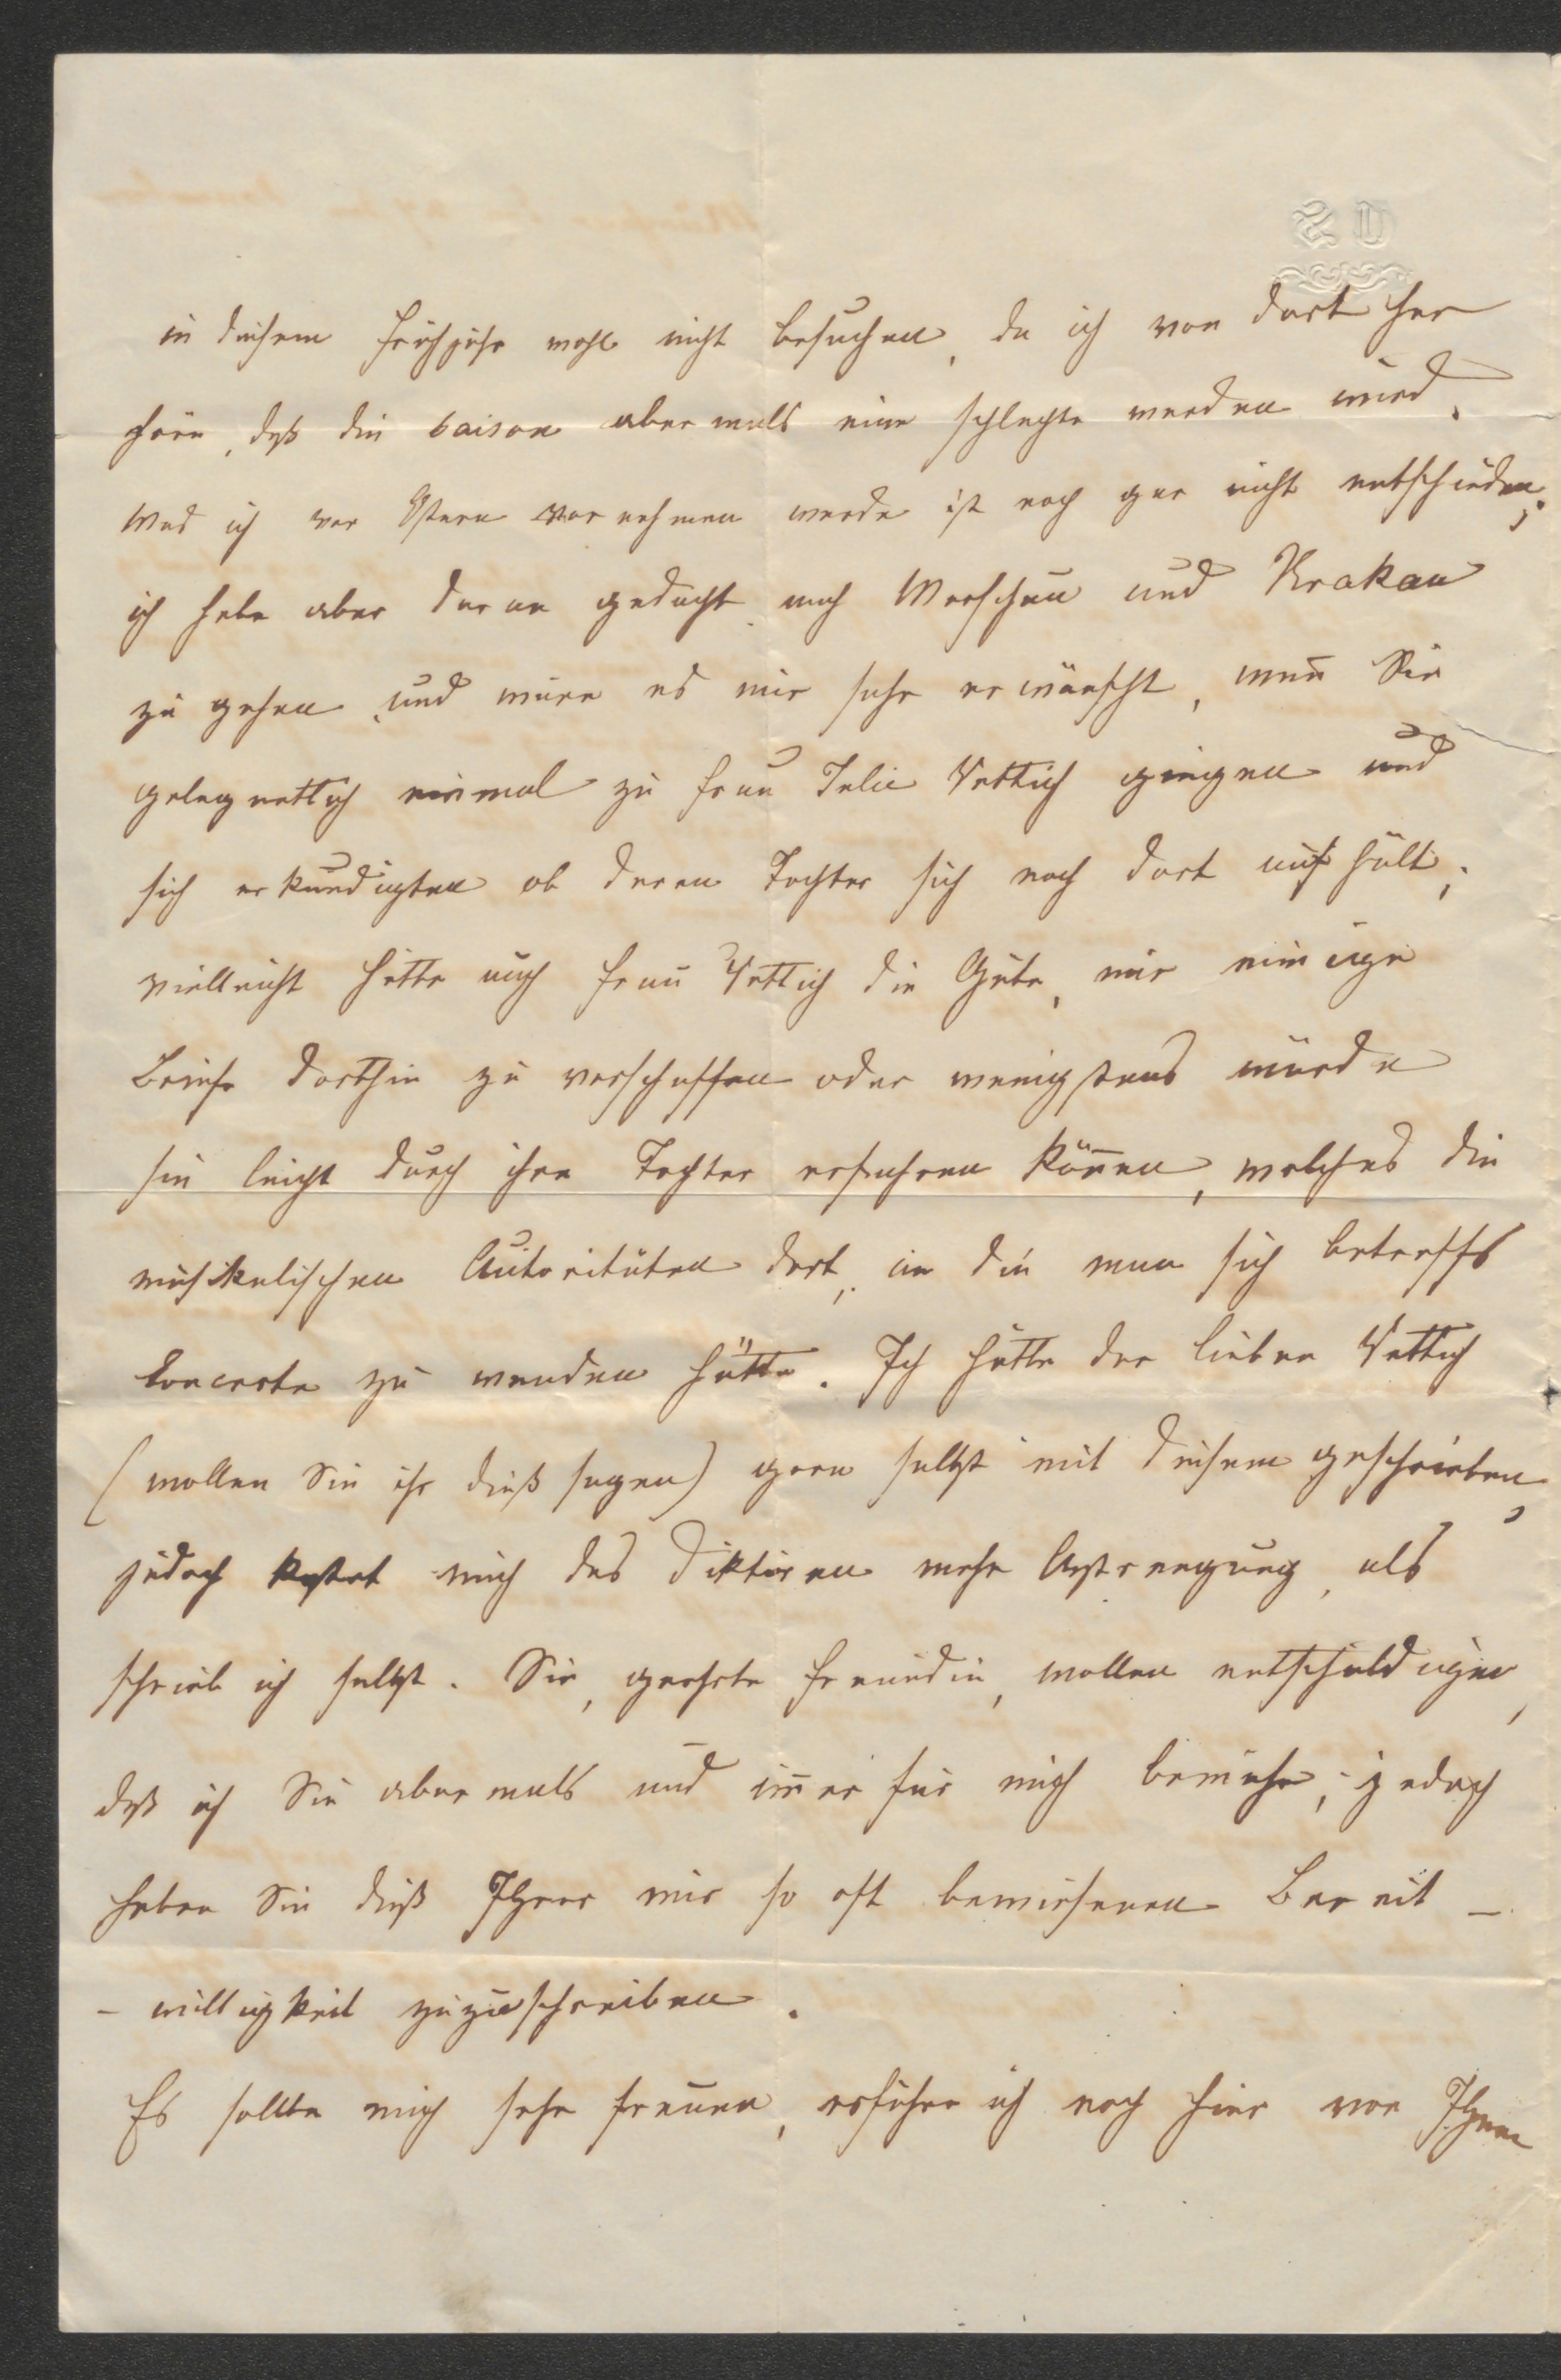 in diesem Frühjahr wohl nicht besuchen, da ich von dort her
höre, daß die Saison abermals eine schlechte werden wird.
Was ich vor Ostern vornehmen werde ist noch gar nicht entschieden;
ich habe aber daran gedacht nach Warschau und Krakau
zu gehen und wäre es mir sehr erwünscht, weñ Sie
gelegentlich einmal zu Frau Julie Rettich giengen und
sich erkundigten ob deren Tochter sich noch dort aufhält;
vielleicht hätte auch Frau Rettich die Güte, mir einige
Briefe dorthin zu verschaffen oder wenigstens würde
sie leicht durch ihre Tochter erfahren köñen, welches die
musikalischen Autoritäten dort, an die man sich betreffs
Concerte zu wenden hätte. Ich hätte der lieben Rettich
(wollen Sie ihr dieß sagen) gern selbst mit diesem geschrieben,
jedoch kostet mich das Diktiren mehr Anstrengung, als
schrieb ich selbst. Sie, geehrte Freundin, wollen entschuldigen,
daß ich Sie abermals und im̄er für mich bemühe; jedoch
haben Sie dieß Ihrer mir so oft bewiesenen Bereit-
- willigkeit zuzuschreiben.
Es sollte mich sehr freuen, erführe ich noch hier von Ihnen